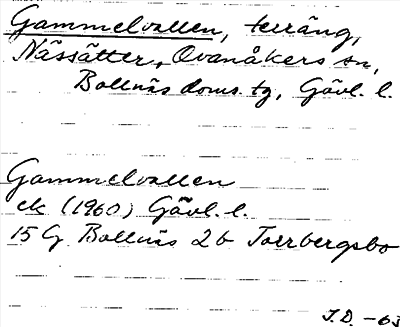 Gammelvallen, terräng,
Nässätter, Ovanåkers sn,
Bollnäs doms. tg, Gävl. l.
Gammelvallen
ek (1960) Gävl. l.
15 G Bollnäs 2b Torrbergsbo
J.D. -63